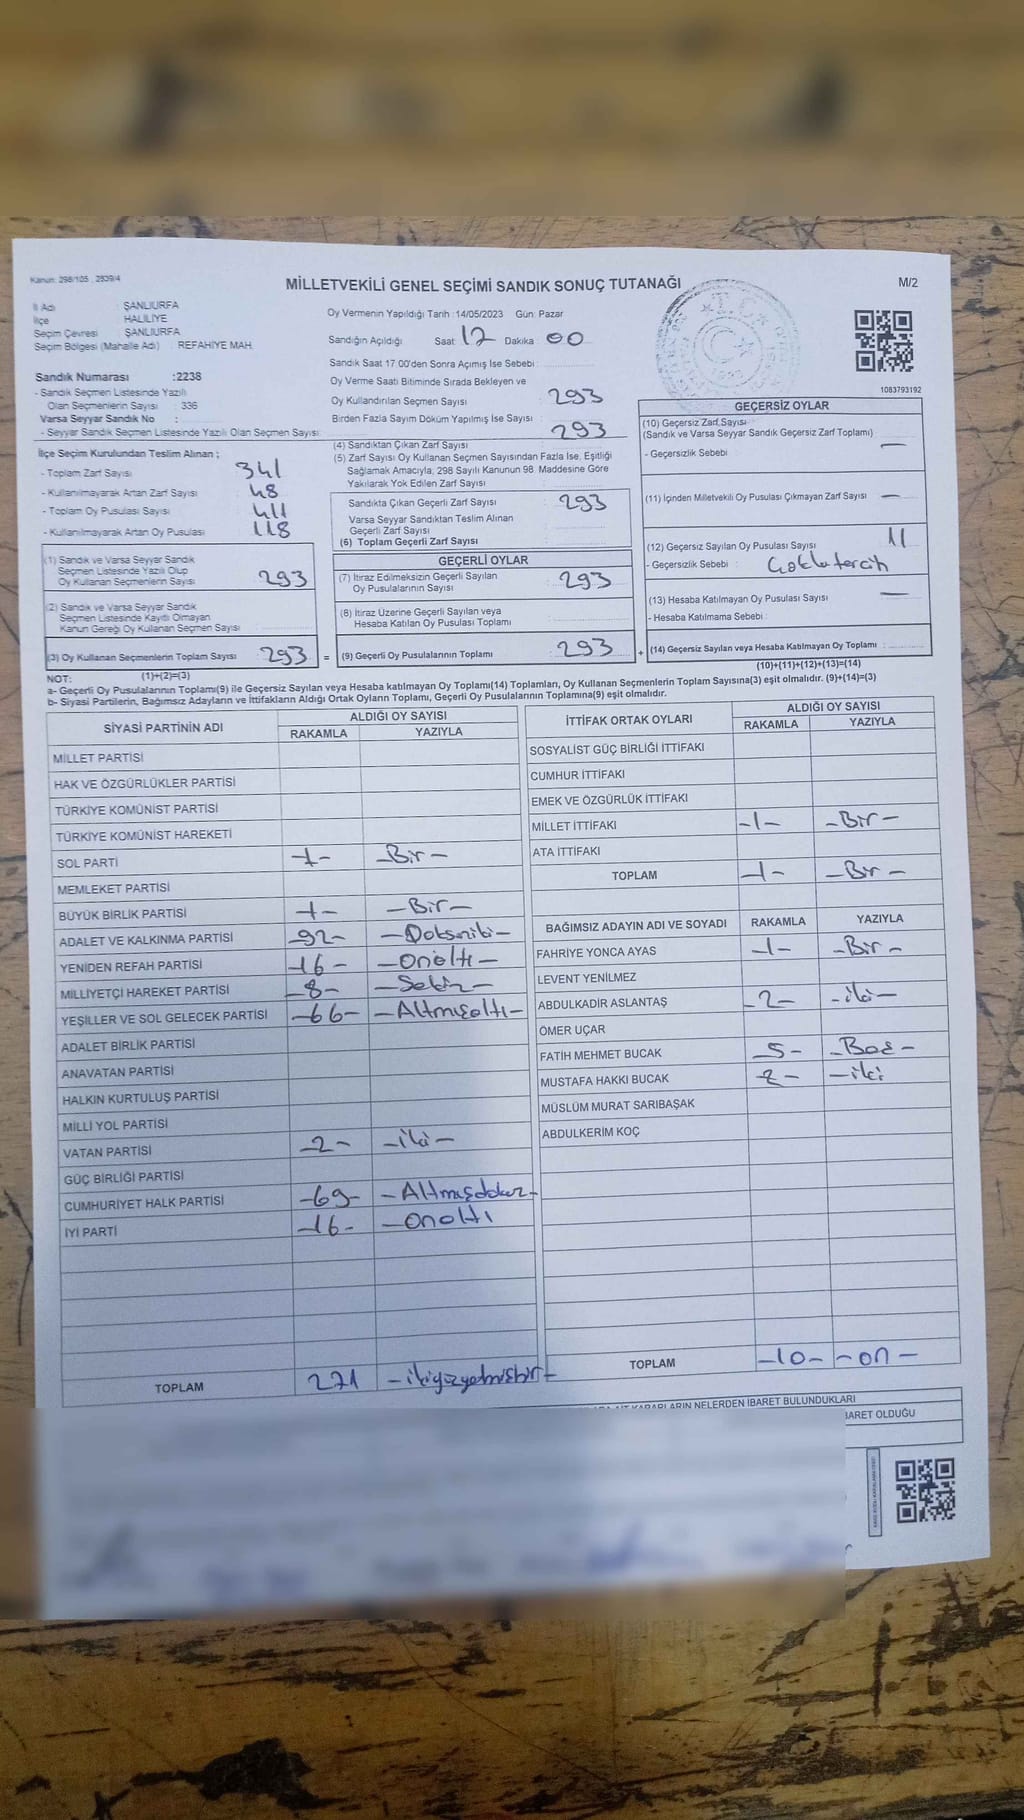 Kanun: 298/105 , 2839/4
MİLLETVEKİLİ GENEL SEÇİMİ SANDIK SONUÇ TUTANAĞI
M/2
İl Adı : ŞANLIURFA
İlçe : HALİLİYE
Seçim Çevresi : ŞANLIURFA
Seçim Bölgesi (Mahalle Adı) : REFAHİYE MAH.
Sandık Numarası :2238
- Sandık Seçmen Listesinde Yazılı
Olan Seçmenlerin Sayısı : 336
Varsa Seyyar Sandık No :
- Seyyar Sandık Seçmen Listesinde Yazılı Olan Seçmen Sayısı:
İlçe Seçim Kurulundan Teslim Alınan ;
- Toplam Zarf Sayısı 341
- Kullanılmayarak Artan Zarf Sayısı 48
- Toplam Oy Pusulası Sayısı 411
- Kullanılmayarak Artan Oy Pusulası 118
(1) Sandık ve Varsa Seyyar Sandık
Seçmen Listesinde Yazılı Olup
Oy Kullanan Seçmenlerin Sayısı : 293
(2) Sandık ve Varsa Seyyar Sandık
Seçmen Listesinde Kayıtlı Olmayan
Kanun Gereği Oy Kullanan Seçmen Sayısı :
(3) Oy Kullanan Seçmenlerin Toplam Sayısı : 293 =
(1)+(2)=(3)
Oy Vermenin Yapıldığı Tarih :14/05/2023 Gün: Pazar
Sandığın Açıldığı Saat 12 Dakika 00
Sandık Saat 17 00'den Sonra Açımış İse Sebebi :
Oy Verme Saati Bitiminde Sırada Bekleyen ve
Oy Kullandırılan Seçmen Sayısı : 293
Birden Fazla Sayım Döküm Yapılmış İse Sayısı : 293
(4) Sandıktan Çıkan Zarf Sayısı :
(5) Zarf Sayısı Oy Kullanan Seçmen Sayısından Fazla İse, Eşitliği
Sağlamak Amacıyla, 298 Sayılı Kanunun 98. Maddesine Göre
Yakılarak Yok Edilen Zarf Sayısı :
Sandıkta Çıkan Geçerli Zarf Sayısı : 293
Varsa Seyyar Sandıktan Teslim Alınan
Geçerli Zarf Sayısı :
(6) Toplam Geçerli Zarf Sayısı :
GEÇERLİ OYLAR
(7) İtiraz Edilmeksizin Geçerli Sayılan
Oy Pusulalarının Sayısı : 293
(8) İtiraz Üzerine Geçerli Sayılan veya
Hesaba Katılan Oy Pusulası Toplamı :
(9) Geçerli Oy Pusulalarının Toplamı : 293 +
1083793192
GEÇERSİZ OYLAR
(10) Geçersiz Zarf Sayısı
(Sandık ve Varsa Seyyar Sandık Geçersiz Zarf Toplamı) : —
- Geçersizlik Sebebi :
(11) İçinden Milletvekili Oy Pusulası Çıkmayan Zarf Sayısı : —
(12) Geçersiz Sayılan Oy Pusulası Sayısı : 11
- Geçersizlik Sebebi : Çoklu tercih
(13) Hesaba Katılmayan Oy Pusulası Sayısı : —
- Hesaba Katılmama Sebebi :
(14) Geçersiz Sayılan veya Hesaba Katılmayan Oy Toplamı :
(10)+(11)+(12)+(13)=(14)
NOT:
a- Geçerli Oy Pusulalarının Toplamı(9) ile Geçersiz Sayılan veya Hesaba katılmayan Oy Toplamı(14) Toplamları, Oy Kullanan Seçmenlerin Toplam Sayısına(3) eşit olmalıdır. (9)+(14)=(3)
b- Siyasi Partilerin, Bağımsız Adayların ve İttifakların Aldığı Ortak Oyların Toplamı, Geçerli Oy Pusulalarının Toplamına(9) eşit olmalıdır.
SİYASİ PARTİNİN ADI ALDIĞI OY SAYISI
RAKAMLA YAZIYLA
MİLLET PARTİSİ
HAK VE ÖZGÜRLÜKLER PARTİSİ
TÜRKİYE KOMÜNİST PARTİSİ
TÜRKİYE KOMÜNİST HAREKETİ
SOL PARTİ -1- -Bir-
MEMLEKET PARTİSİ
BÜYÜK BİRLİK PARTİSİ -1- -Bir-
ADALET VE KALKINMA PARTİSİ -92- -Doksaniki-
YENİDEN REFAH PARTİSİ -16- -onaltı-
MİLLİYETÇİ HAREKET PARTİSİ -8- -Sekiz-
YEŞİLLER VE SOL GELECEK PARTİSİ -66- -Altmışaltı-
ADALET BİRLİK PARTİSİ
ANAVATAN PARTİSİ
HALKIN KURTULUŞ PARTİSİ
MİLLİ YOL PARTİSİ
VATAN PARTİSİ -2- -iki-
GÜÇ BİRLİĞİ PARTİSİ
CUMHURİYET HALK PARTİSİ -69- -Altmışdokuz-
İYİ PARTİ -16- -onaltı
TOPLAM 271 -ikiyüzyetmişbir-
İTTİFAK ORTAK OYLARI ALDIĞI OY SAYISI
RAKAMLA YAZIYLA
SOSYALİST GÜÇ BİRLİĞİ İTTİFAKI
CUMHUR İTTİFAKI
EMEK VE ÖZGÜRLÜK İTTİFAKI
MİLLET İTTİFAKI -1- -Bir-
ATA İTTİFAKI
TOPLAM -1- -Bir-
BAĞIMSIZ ADAYIN ADI VE SOYADI RAKAMLA YAZIYLA
FAHRİYE YONCA AYAS -1- -Bir-
LEVENT YENİLMEZ
ABDULKADİR ASLANTAŞ -2- -iki-
ÖMER UÇAR
FATİH MEHMET BUCAK -5- -Beş-
MUSTAFA HAKKI BUCAK -2- -iki
MÜSLÜM MURAT SARIBAŞAK
ABDULKERİM KOÇ
TOPLAM -10- -on-
NELERDEN İBARET BULUNDUKLARI
İBARET OLDUĞU